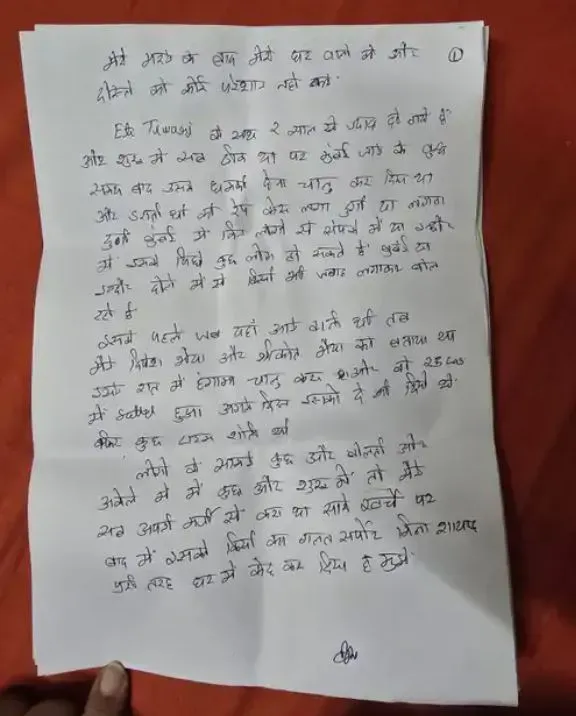 मेरे मरने के बाद मेरे घर वालो को और ①
दोस्तो को कोई परेशान नही करे.
के साथ २ साल से ज्यादा हो गये है
और शुरू में सब ठीक था पर मुंबई जाने के कुछ
समय बाद उसने धमकी देना चालु कर दिया था
और डराती थी की रेप केस लगा दुगी या लगवा
दुगी मुंबई में किन लोगो से संपर्क में या इन्दौर
में उसके पिछे कुछ लोग हो सकते है मुंबई या
इन्दौर दोनो में से किसी भी जगह लगाकर बोल
रहे है
इससे पहले जब यहाँ आई थी तब
मैने भैया और भैया को बताया था
उसने रात में हंगामा चालु करा और वो 25 Lac
में settled हुआ अगले दिन उसको दे भी दिये थे
फिर कुछ टाइम शांत थी
लोगो के सामने कुछ और बोलती और
अकेले में में कुछ और शुरू में तो मैने
सब अपनी मर्जी से करा था सारे खर्चे पर
बाद में इसको किसी का गलत सपोर्ट मिला शायद
पुरी तरह घर में कैद कर दिया है मुझे.